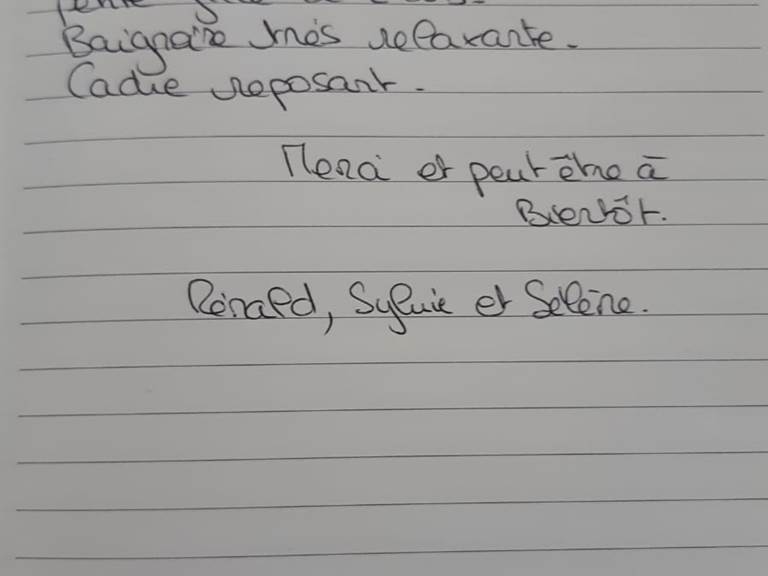 Baignoire très relaxante.
Cadre reposant.
Merci et peut être à
Bientôt.
Rénald, Sylvie et Selène.